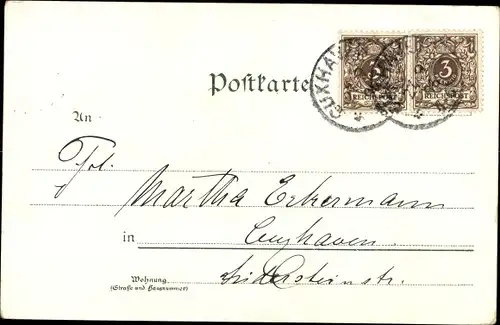 CUXHAVEN
3 3
REICHSPOST REICHSPOST
Postkarte
An
Frl.
Martha Eckermann
in Cuxhaven.
Wohnung
(Straße und Hausnummer)